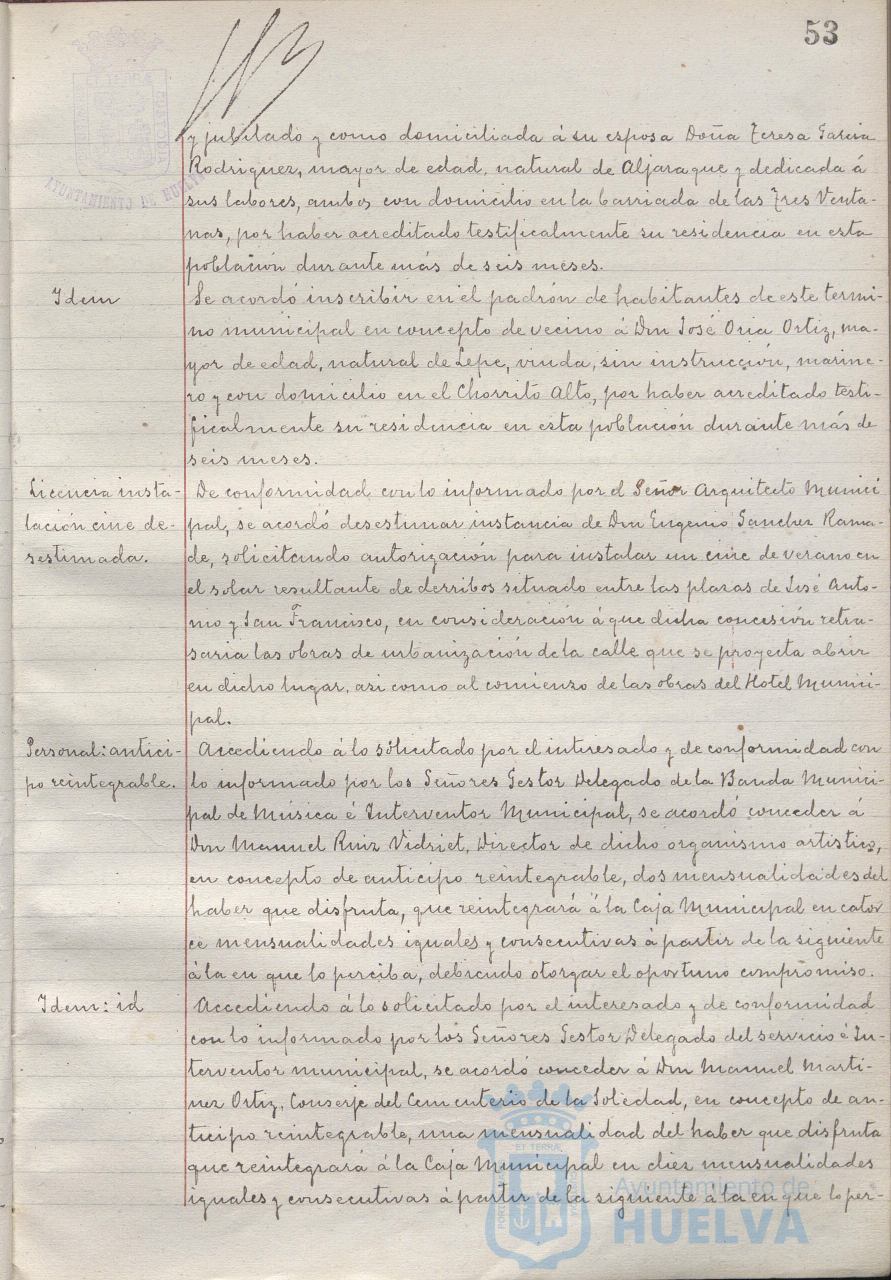 53
y jubilado y como domiciliada á su esposa Doña Teresa Garcia
Rodriguez, mayor de edad, natural de Aljaraque y dedicada á
sus labores, ambos con domicilio en la barriada de las Tres Venta-
nas, por haber acreditado testificalmente su residencia en esta
población durante más de seis meses.
Idem
Se acordó inscribir en el padrón de habitantes de este termi-
no municipal en concepto de vecino á Don José Oria Ortiz, ma-
yor de edad, natural de Lepe, viudo, sin instrucción, marine-
ro y con domicilio en el Chorrito Alto, por haber acreditado testi-
ficalmente su residencia en esta población durante más de
seis meses.
Licencia insta-
lación cine de-
sestimada.
De conformidad con lo informado por el Señor Arquitecto Munici
pal, se acordó desestimar instancia de Don Eugenio Sanchez Rama-
de, solicitando autorización para instalar un cine de verano en
el solar resultante de derribos situado entre las plazas de José Anto-
nio y San Francisco, en consideración á que dicha concesión retra-
saria las obras de urbanización de la calle que se proyecta abrir
en dicho lugar, asi como al comienzo de las obras del Hotel Munici-
pal.
Personal: antici-
po reintegrable.
Accediendo á lo solicitado por el interesado y de conformidad con
lo informado por los Señores Gestor Delegado de la Banda Munici-
pal de Música é Interventor Municipal, se acordó conceder á
Don Manuel Ruiz Vidriet, Director de dicho organismo artistico,
en concepto de anticipo reintegrable, dos mensualidades del
haber que disfruta, que reintegrará á la Caja Municipal en cator
ce mensualidades iguales y consecutivas á partir de la siguiente
á la en que lo perciba, debiendo otorgar el oportuno compromiso.
Idem: id
Accediendo á lo solicitado por el interesado y de conformidad
con lo informado por los Señores Gestor Delegado del servicio é In-
terventor municipal, se acordó conceder á Don Manuel Marti-
nez Ortiz, Conserje del Cementerio de la Soledad, en concepto de an-
ticipo reintegrable, una mensualidad del haber que disfruta
que reintegrará á la Caja Municipal en diez mensualidades
iguales y consecutivas á partir de la siguiente á la en que lo per-
AYUNTAMIENTO DE HUELVA
Ayuntamiento de
HUELVA